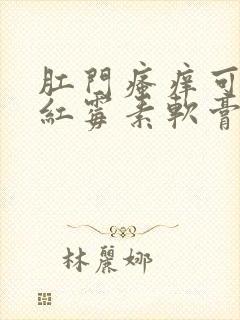 肛門瘙痒可
紅霉素軟膏
林麗娜